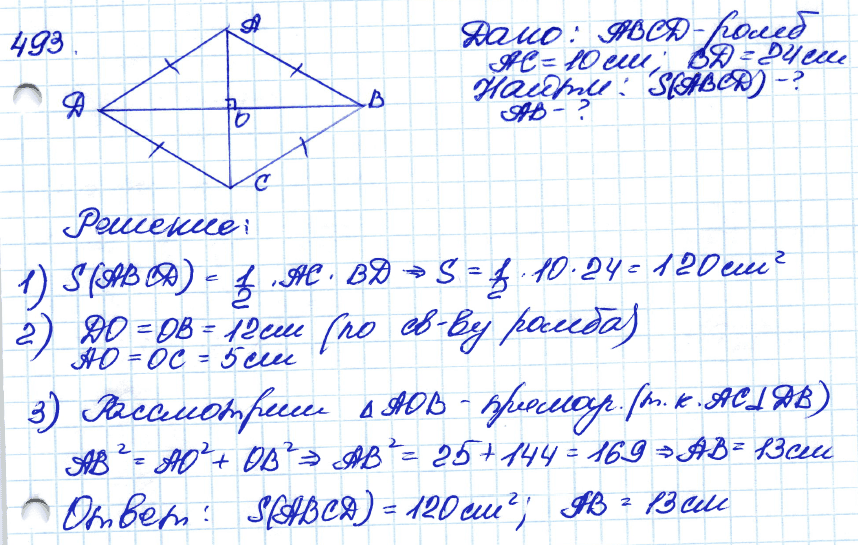 493.
A
D
B
O
C
Дано: ABCD - ромб
AC = 10 см; BD = 24 см
Найти: S(ABCD) - ?
AB - ?
Решение:
1) S(ABCD) = 1/2 · AC · BD ⇒ S = 1/2 · 10 · 24 = 120 см²
2) DO = OB = 12 см (по св-ву ромба)
AO = OC = 5 см
3) Рассмотрим △AOB - прямоуг. (т.к. AC⊥DB)
AB² = AO² + OB² ⇒ AB² = 25 + 144 = 169 ⇒ AB = 13 см
Ответ: S(ABCD) = 120 см²; AB = 13 см